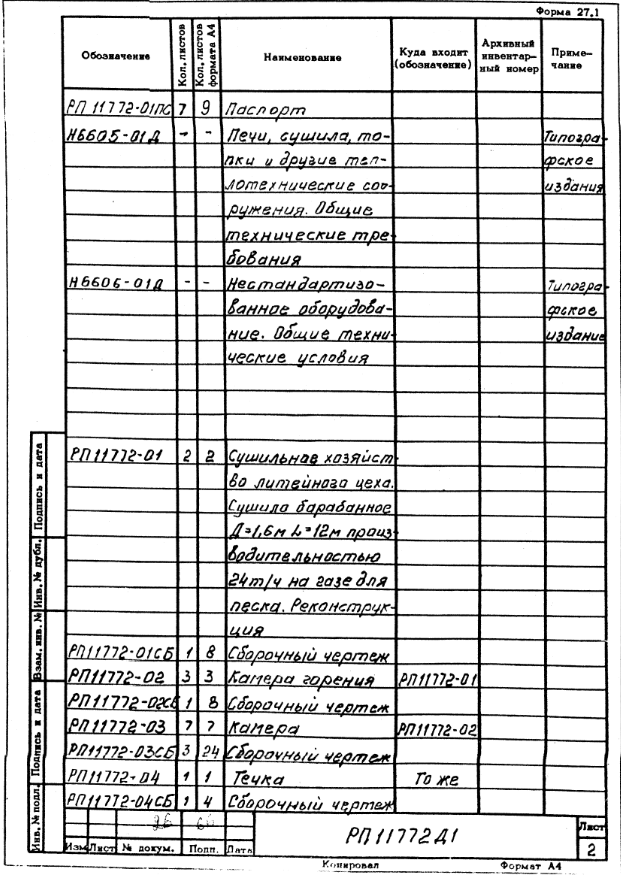 Форма 27.1
Обозначение Кол. листов Кол. листов формата А4 Наименование Куда входит (обозначение) Архивный инвентарный номер Примечание
РП 11772-01ПС 7 9 Паспорт
Н6605-01Д - - Печи, сушила, то-
пки и другие теп-
лотехнические соо-
ружения. Общие
технические тре-
бования
Типогра-
фское
издания
Н6606-01Д - - Нестандартизо-
ванное оборудова-
ние. Общие техни-
ческие условия
Типогра-
фское
издание
РП11772-01 2 2 Сушильное хозяйст
во литейного цеха.
Сушила барабанное
Д=1,6м L=12м произ
водительностью
24т/ч на газе для
песка. Реконструк-
ция
РП11772-01СБ 1 8 Сборочный чертеж
РП11772-02 3 3 Камера горения РП11772-01
РП11772-02СБ 1 8 Сборочный чертеж
РП11772-03 7 7 Камера РП11772-02
РП11772-03СБ 3 24 Сборочный чертеж
РП11772-04 1 1 Течка То же
РП11772-04СБ 1 4 Сборочный чертеж
Инв. № подл. Подпись и дата Взам. инв. № Инв. № дубл. Подпись и дата
Изм Лист № докум. Подп. Дата
РП 11772Д1
Лист
2
Копировал Формат А4